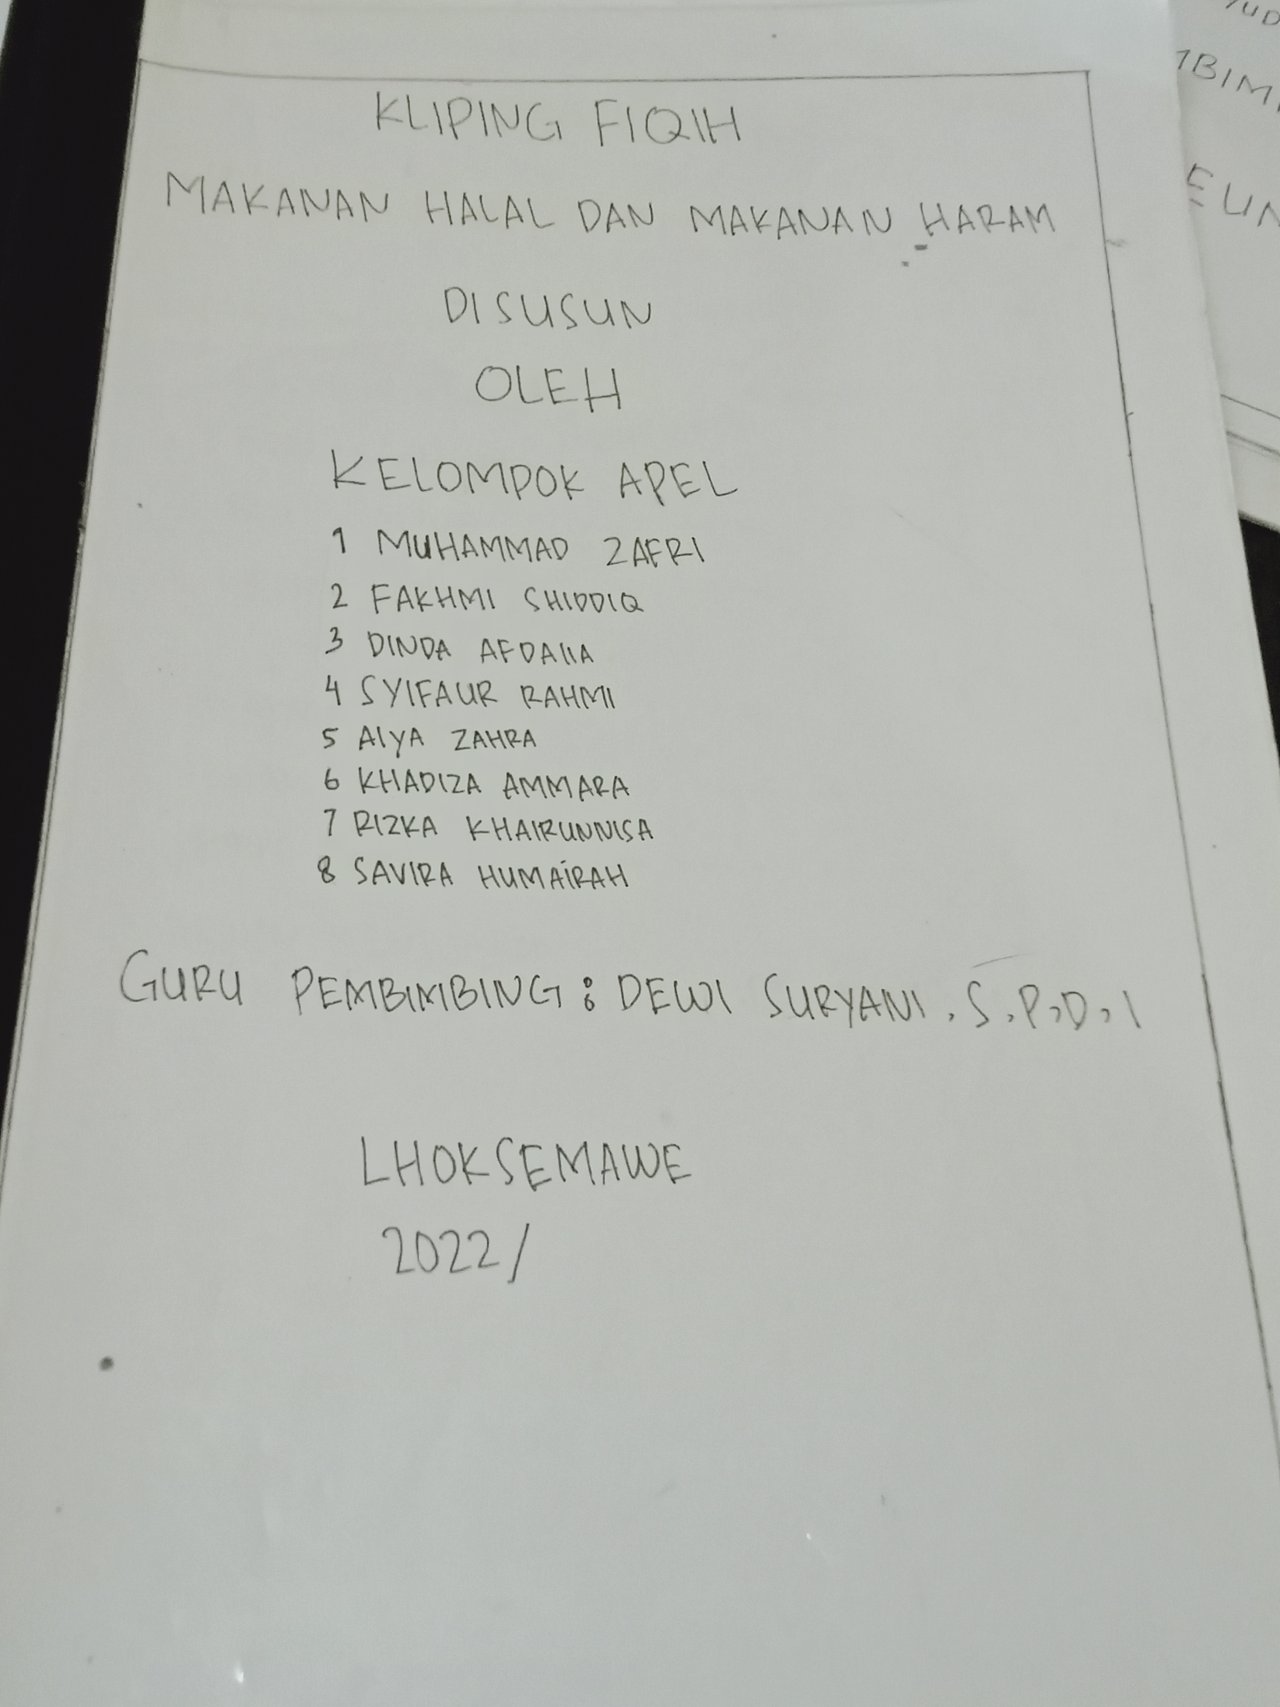 KLIPING FIQIH
MAKANAN HALAL DAN MAKANAN HARAM
DISUSUN
OLEH
KELOMPOK APEL
1 MUHAMMAD ZAFRI
2 FAKHMI SHIDDIQ
3 DINDA AFDAllA
4 SYIFAUR RAHMI
5 AlYA ZAHRA
6 KHADIZA AMMARA
7 RIZKA KHAIRUNNISA
8 SAVIRA HUMAiRAH
GURU PEMBIMBING : DEWI SURYANI , S , P , D , I
LHOKSEMAWE
2022 /